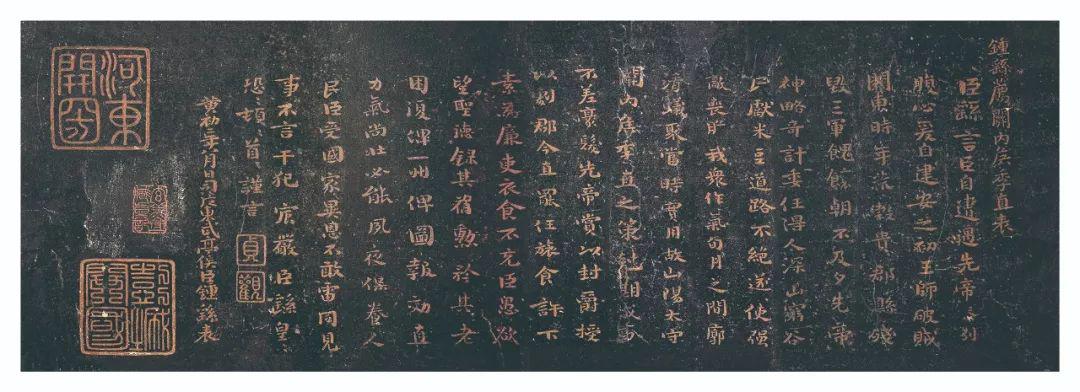 鍾繇薦關內侯季直表
臣繇言臣自遭遇先帝忝列
腹心爰自建安之初王師破賊
關東時年荒穀貴郡縣殘
毀三軍餽饟朝不及夕先帝
神略奇計委任得人深山窮谷
民獻米豆道路不絕遂使强
敵喪膽我衆作氣旬月之間廓
清蟻聚當時實用故山陽太守
關內侯季直之策剋期成事
不差豪髮先帝賞以封爵授
以劇郡今直罷任旅食許下
素爲廉吏衣食不充臣愚欲
望聖德錄其舊勳矜其老
困復俾一州俾圖報効直
力氣尚壯必能夙夜保養人
民臣受國家異恩不敢雷同見
事不言干犯宸嚴臣繇皇
恐〻頓〻首〻謹言
貞觀
黃初二年八月日司徒東武亭侯臣鍾繇表
河東